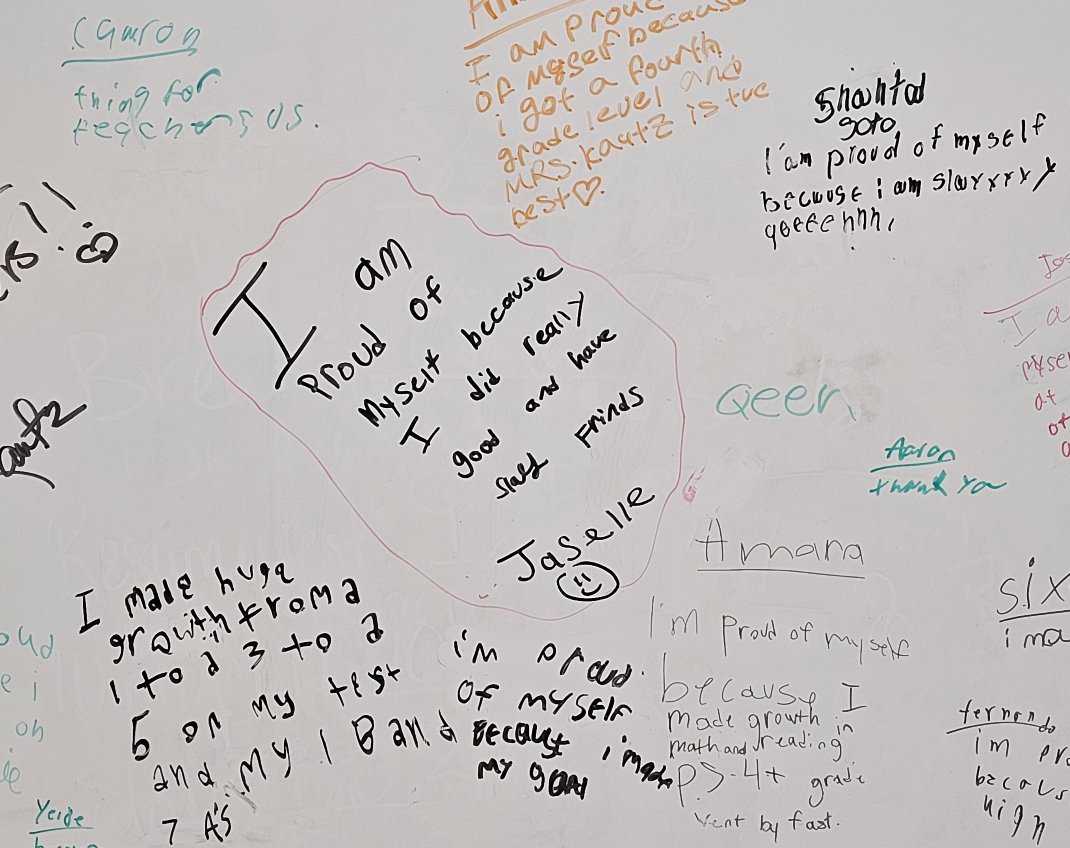 camron
thing for
teachers us.
I am proud
of myself because
i got a fourth
grade level and
MRS. kautz is the
best♡.
Shahtal
soto
I'am proud of myself
because i am slayxxxy
qeeeehhh,
rs!!
autz
I am
Proud of
Myself because
I did really
good and have
slay Frinds
Jaselle
Qeen
Aaron
thank you
I a
myse
at
of
Amara
I'm Proud of myself
because I
made growth in
math and reading
p3-4+ grade
vent by fast.
I made huge
growth from a
1 to a 3 to a
5 on my test
and my 1 B and
7 A's
i'm proud
of myself
Because i made
my goal
oud
e i
on
six
i ma
fernando
im pro
becaus
high
Yeide